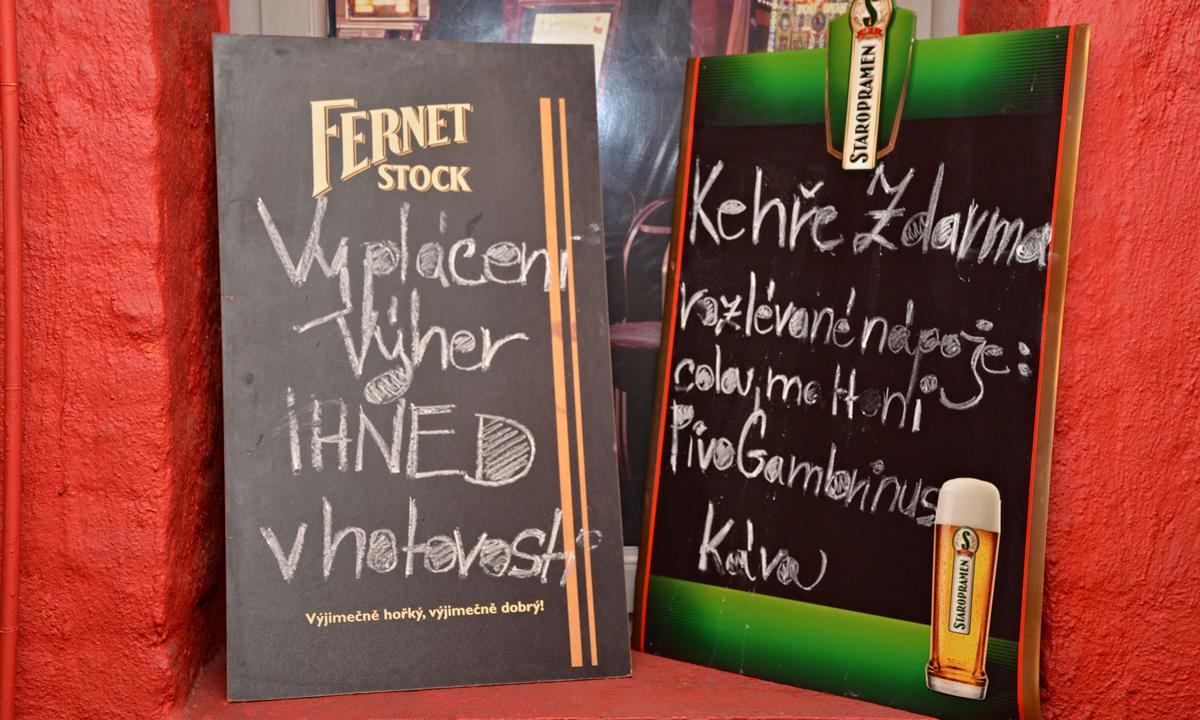 FERNET
STOCK
Vyplácení
Výher
IHNED
v hotovosti
Výjimečně hořký, výjimečně dobrý!
S
STAROPRAMEN
Kehře Zdarma
rozlévané nápoje:
cola, mattoni
Pivo Gambrinus
Káva
S
STAROPRAMEN